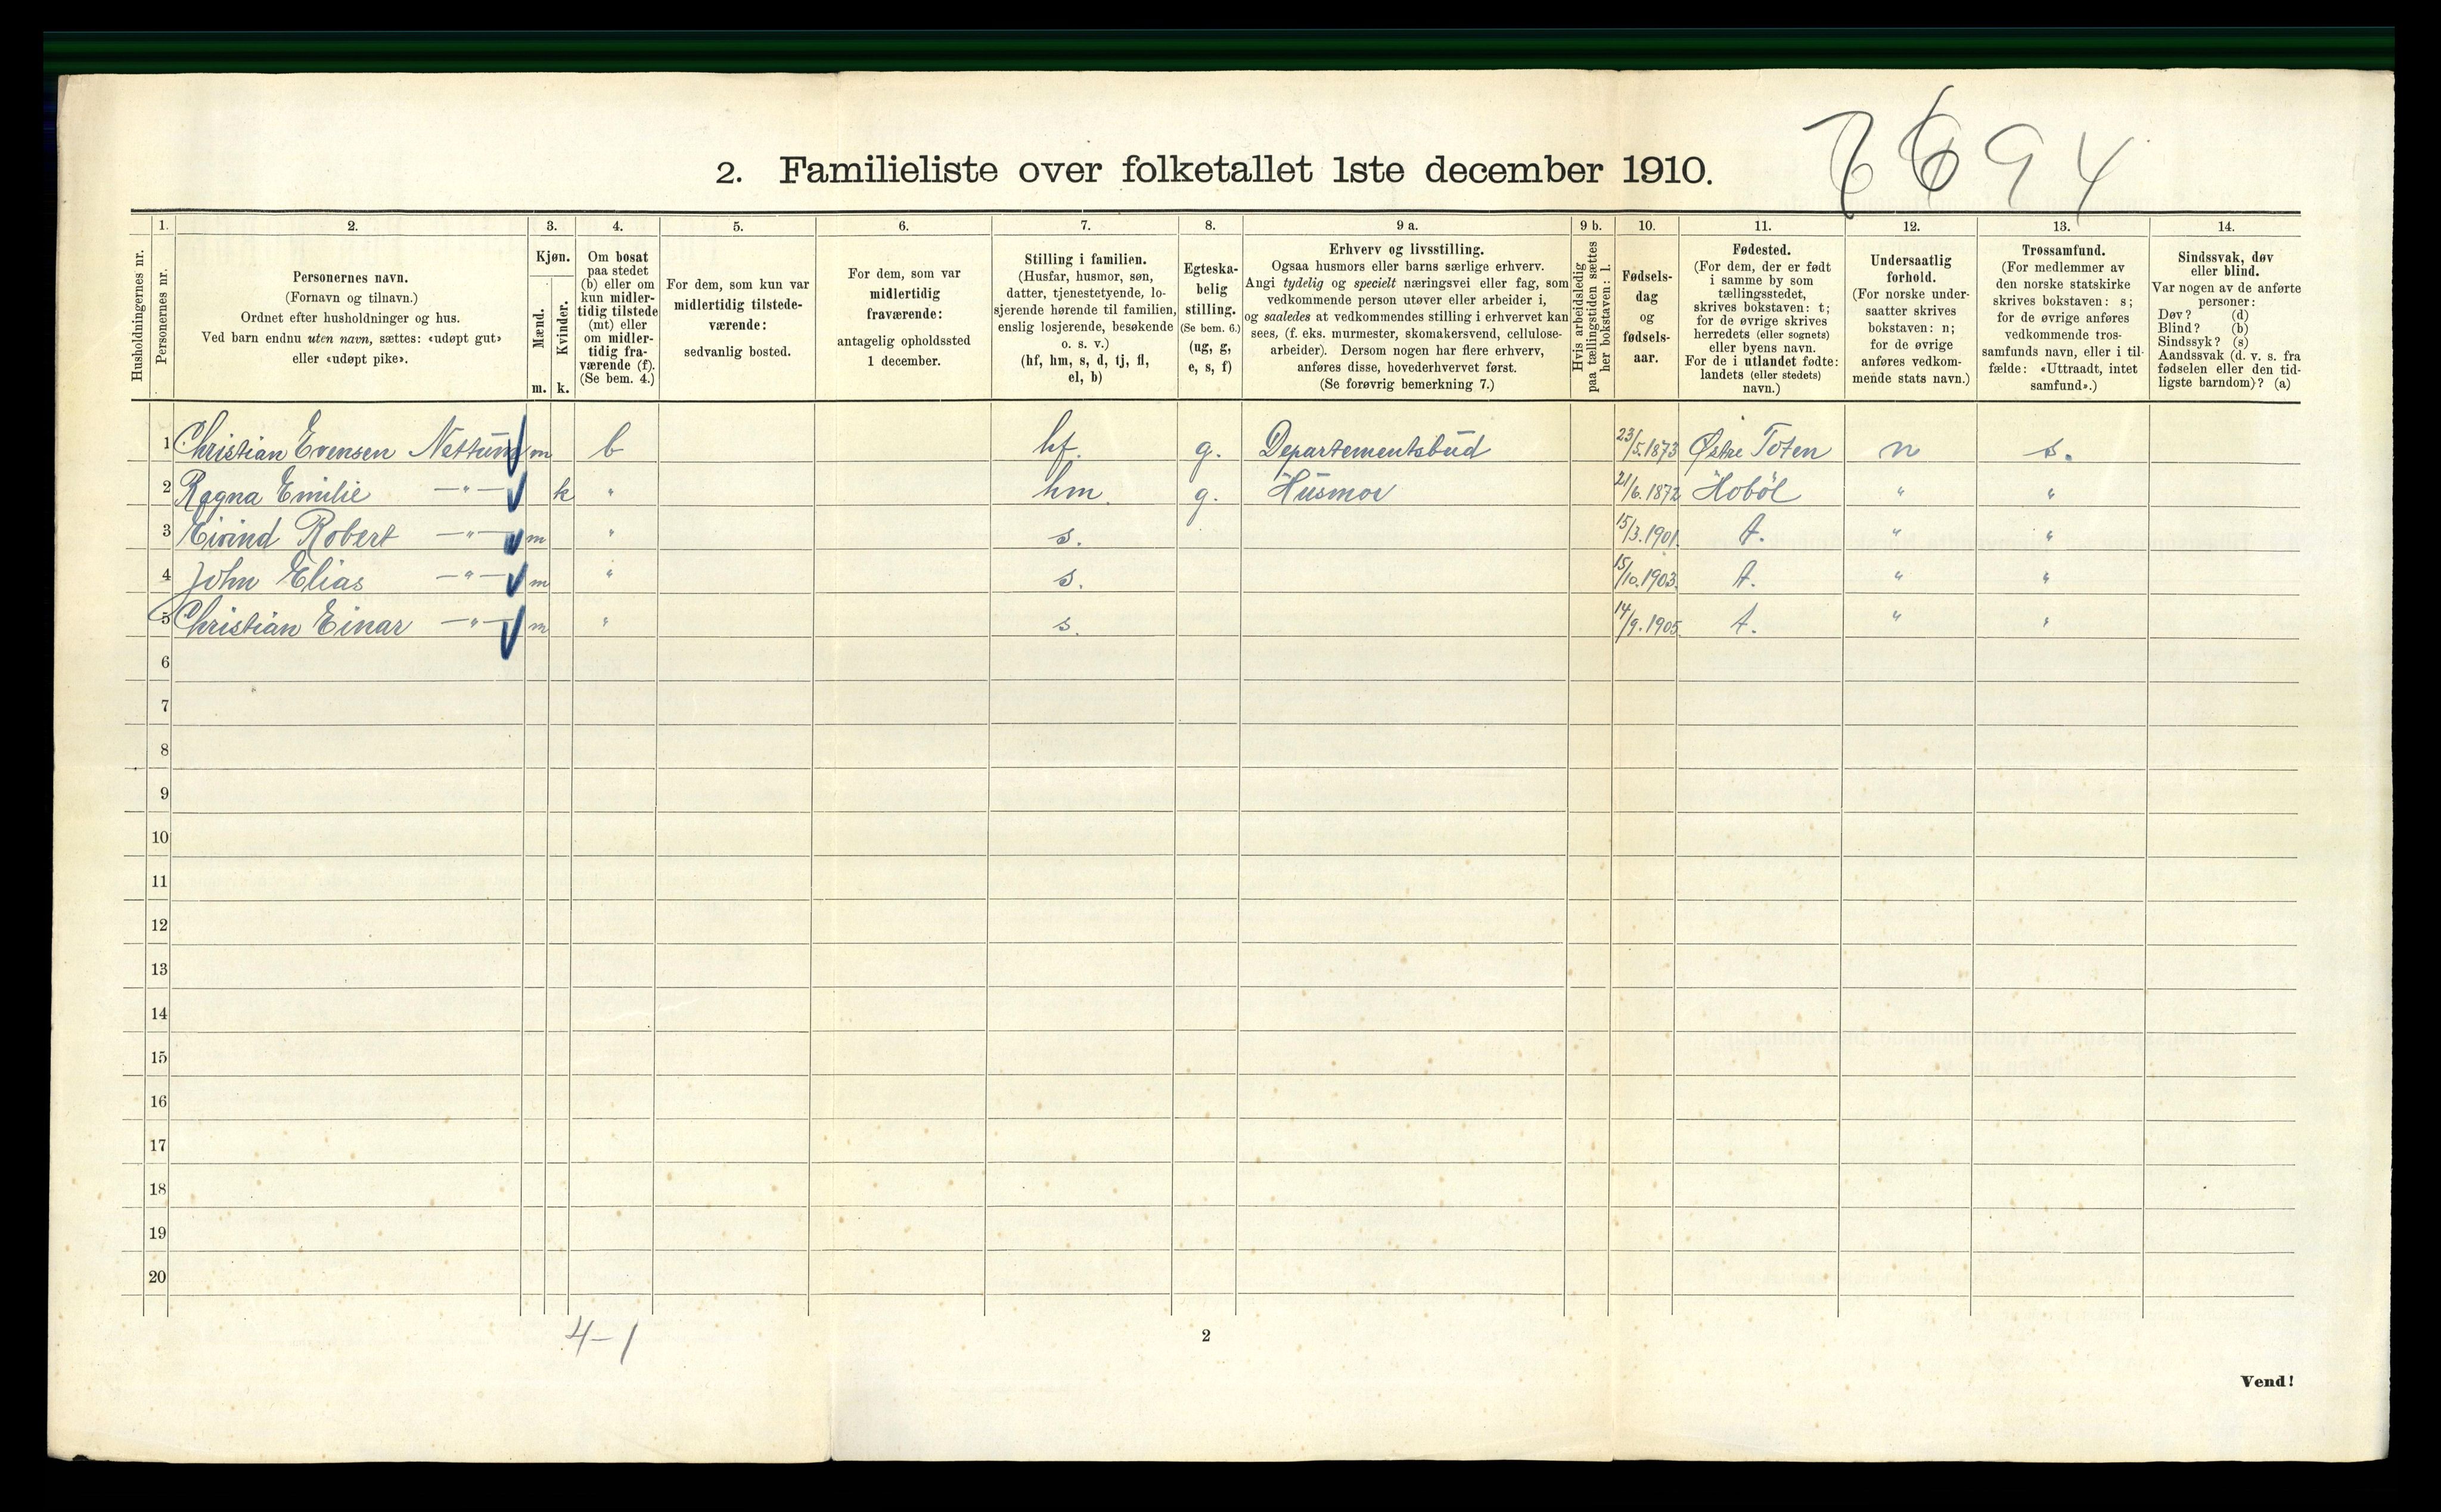 2. Familieliste over folketallet 1ste december 1910.
1. 2. 3. 4. 5. 6. 7. 8. 9 a. 9 b. 10. 11. 12. 13. 14.
Husholdningernes nr.
Personernes nr.
Personernes navn.
(Fornavn og tilnavn.)
Ordnet efter husholdninger og hus.
Ved barn endnu uten navn, sættes: «udøpt gut»
eller «udøpt pike».
Kjøn.
Mænd.
m.
Kvinder.
k.
Om bosat
paa stedet
(b) eller om
kun midler-
tidig tilstede
(mt) eller
om midler-
tidig fra-
værende (f).
(Se bem. 4.)
For dem, som kun var
midlertidig tilstede-
værende:
sedvanlig bosted.
For dem, som var
midlertidig
fraværende:
antagelig opholdssted
1 december.
Stilling i familien.
(Husfar, husmor, søn,
datter, tjenestetyende, lo-
sjerende hørende til familien,
enslig losjerende, besøkende
o. s. v.)
(hf, hm, s, d, tj, fl,
el, b)
Egteska-
belig
stilling.
(Se bem. 6.)
(ug, g,
e, s, f)
Erhverv og livsstilling.
Ogsaa husmors eller barns særlige erhverv.
Angi tydelig og specielt næringsvei eller fag, som
vedkommende person utøver eller arbeider i,
og saaledes at vedkommendes stilling i erhvervet kan
sees, (f. eks. murmester, skomakersvend, cellulose-
arbeider). Dersom nogen har flere erhverv,
anføres disse, hovederhvervet først.
(Se forøvrig bemerkning 7.)
Hvis arbeidsledig
paa tællingstiden sættes
her bokstaven: l.
Fødsels-
dag
og
fødsels-
aar.
Fødested.
(For dem, der er født
i samme by som
tællingsstedet,
skrives bokstaven: t;
for de øvrige skrives
herredets (eller sognets)
eller byens navn.
For de i utlandet fødte:
landets (eller stedets)
navn.)
Undersaatlig
forhold.
(For norske under-
saatter skrives
bokstaven: n;
for de øvrige
anføres vedkom-
mende stats navn.)
Trossamfund.
(For medlemmer av
den norske statskirke
skrives bokstaven: s;
for de øvrige anføres
vedkommende tros-
samfunds navn, eller i til-
fælde: «Uttraadt, intet
samfund».)
Sindssvak, døv
eller blind.
Var nogen av de anførte
personer:
Døv? (d)
Blind? (b)
Sindssyk? (s)
Aandssvak (d. v. s. fra
fødselen eller den tid-
ligste barndom)? (a)
1 Christian Evensen Nettum m b hf. g. Departementsbud 23/5.1873 Østre Toten n s.
2 Ragna Emilie —"— k " hm. g. Husmor 21/6.1872 Hobøl " "
3 Eivind Robert —"— m " s. 15/3.1901. t. " "
4 John Elias —"— m " s. 15/10.1903. t. " "
5 Christian Einar —"— m " s. 14/9.1905. t. " "
6
7
8
9
10
11
12
13
14
15
16
17
18
19
20
4–1
2
Vend!